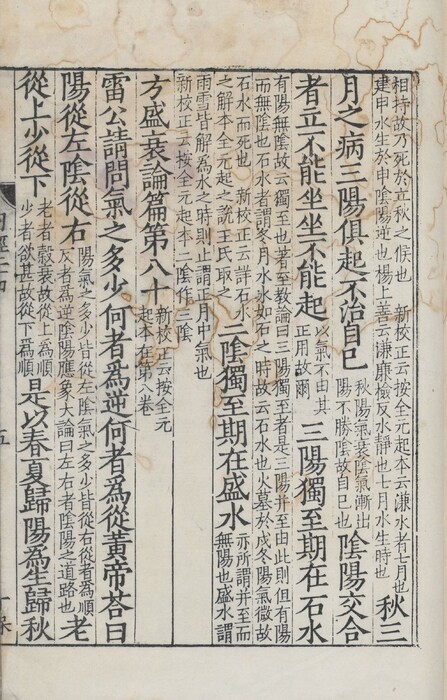 相持故乃死於立秋之候也　新校正云按全元起本云溓水者七月也
建申水生於申陰陽逆也　楊上善云溓廉檢反水靜也七月水生時也
秋三
月之病三陽俱起不治自已
秋陽氣衰陰氣漸出
陽不勝陰故自已也
陰陽交合
者立不能坐坐不能起
以氣不由其
正用故爾
三陽獨至期在石水
有陽無陰故云獨至也著至教論曰三陽獨至者是三陽并至由此則但有陽
而無陰也石水者謂冬月水氷如石之時故云石水也火墓於戌冬陽氣微故
石水而死也　新校正云詳石水
之解本全元起之說王氏取之
二陰獨至期在盛水
亦所謂并至而
無陽也盛水謂
雨雪皆解爲水之時則止謂正月中氣也
新校正云按全元起本二陰作三陰
方盛衰論篇第八十
新校正云按全元
起本在第八卷
雷公請問氣之多少何者爲逆何者爲從黃帝荅曰
陽從左陰從右
陽氣之多少皆從左陰氣之多少皆從右從者爲順
反者爲逆陰陽應象大論曰左右者陰陽之道路也
老
從上少從下
老者穀衰故從上爲順
少者欲甚故從下爲順
是以春夏歸陽爲生歸秋
五